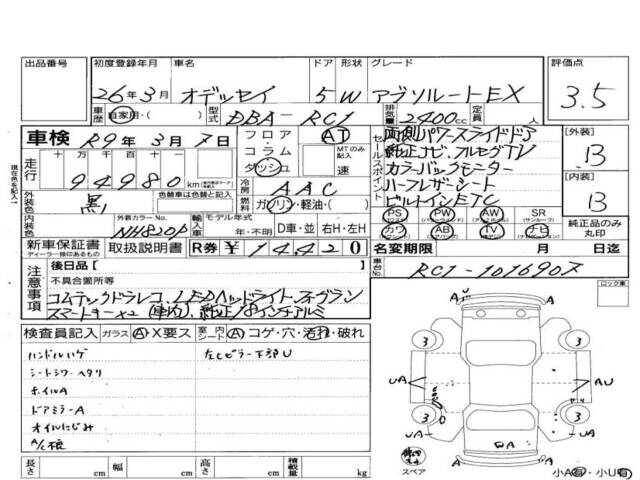 出品番号 初度登録年月 車名 ドア 形状 グレード 評価点
26年3月 オデッセイ 5 W アブソルートEX 3.5
車歴 自家用・( ) 型式 DBA-RC1 排気量 2400cc 定員 人
車検 R9年3月7日 フロア・コラム ダッシュ AT MTのみ記入 速
セールスポイント 両側パワースライドドア
純正ナビ、フルセグTV
カラーバックモニター
ハーフレザーシート
ビルトインETC
[外装] B
[内装] B
現在色を記入
走行 十万 万 千 百 十 一
94980 km
冷房 AAC
外装色 黒 色替車は色替と記入
燃料 ガソリン・軽油・( )
PS PW AW SR
(パワステ) (サンルーフ)
カワ AB TV ナビ
純正品のみ丸印
内装色 外装カラーNo. NH820P 輸入車 モデル年式 年・不明 D車・並 右H・左H
新車保証書 取扱説明書 R券 ¥14420
ディーラー捺印あるもの
名変期限 月 日迄
車台No. RC1-1016907
注意事項 後日品[ ]
不具合箇所等
コムテックドラレコ、LEDヘッドライト、フォグラン
スマートキー×2 純正18インチアルミ
検査員記入 ガラス A・X要ス 室内シート A コゲ・穴・汚れ・破れ
ハンドルハゲ 左Cピラー下部U
シートシワ・ヘタリ
ホイルA
ドアミラーA
オイルにじみ
長さ cm 幅 cm 高さ cm 積載量 kg
ロック車
AU A
3 3
UA AU
3 3
UA UA
A
スペア
小A有・小U有